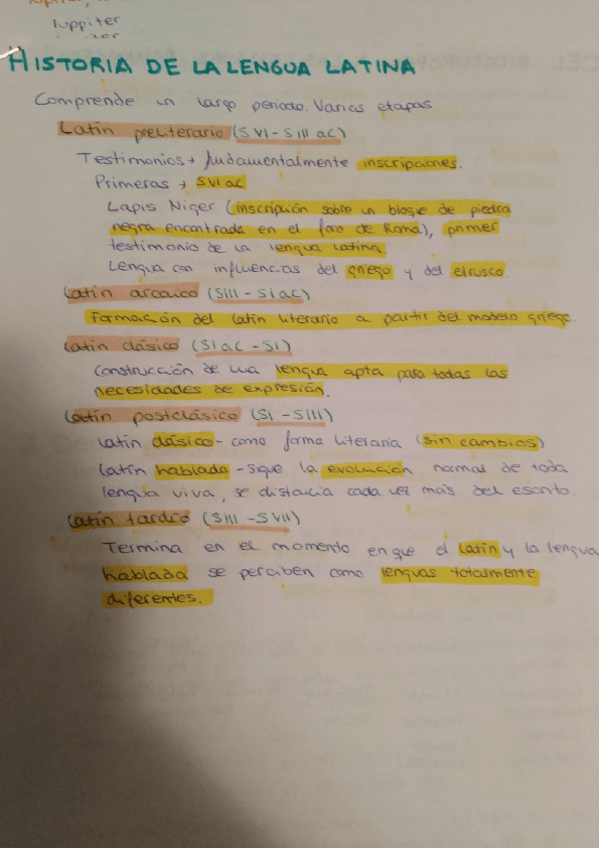 Iuppiter
HISTORIA DE LA LENGUA LATINA
Comprende un largo periodo. Varias etapas
Latín preliterario (SVI-SIII aC)
Testimonios → fundamentalmente inscripciones.
Primeras → SVI aC
Lapis Niger (inscripción sobre un bloque de piedra
negra encontrada en el foro de Roma), primer
testimonio de la lengua latina.
Lengua con influencias del griego y del etrusco.
Latín arcaico (SIII - SI aC)
Formación del latín literario a partir del modelo griego.
Latín clásico (SI aC - SI)
Construcción de una lengua apta para todas las
necesidades de expresión.
Latín postclásico (SI - SIII)
Latín clásico - como forma literaria (sin cambios)
Latín hablado - sigue la evolución normal de toda
lengua viva, se distancia cada vez más del escrito.
Latín tardío (SIII - SVII)
Termina en el momento en que el latín y la lengua
hablada se perciben como lenguas totalmente
diferentes.